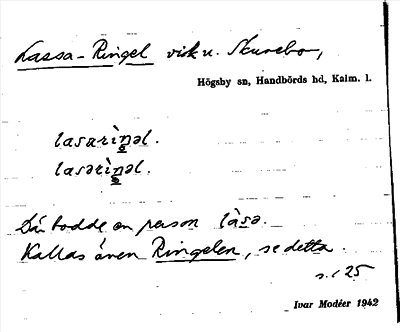 Lassa-Ringel vik u. Skurebo,
Högsby sn, Handbörds hd, Kalm. l.
lasarìŋəl.
lasərìŋəl.
Där bodde en person làsə.
Kallas även Ringelen, se detta.
s. 125
Ivar Modéer 1942